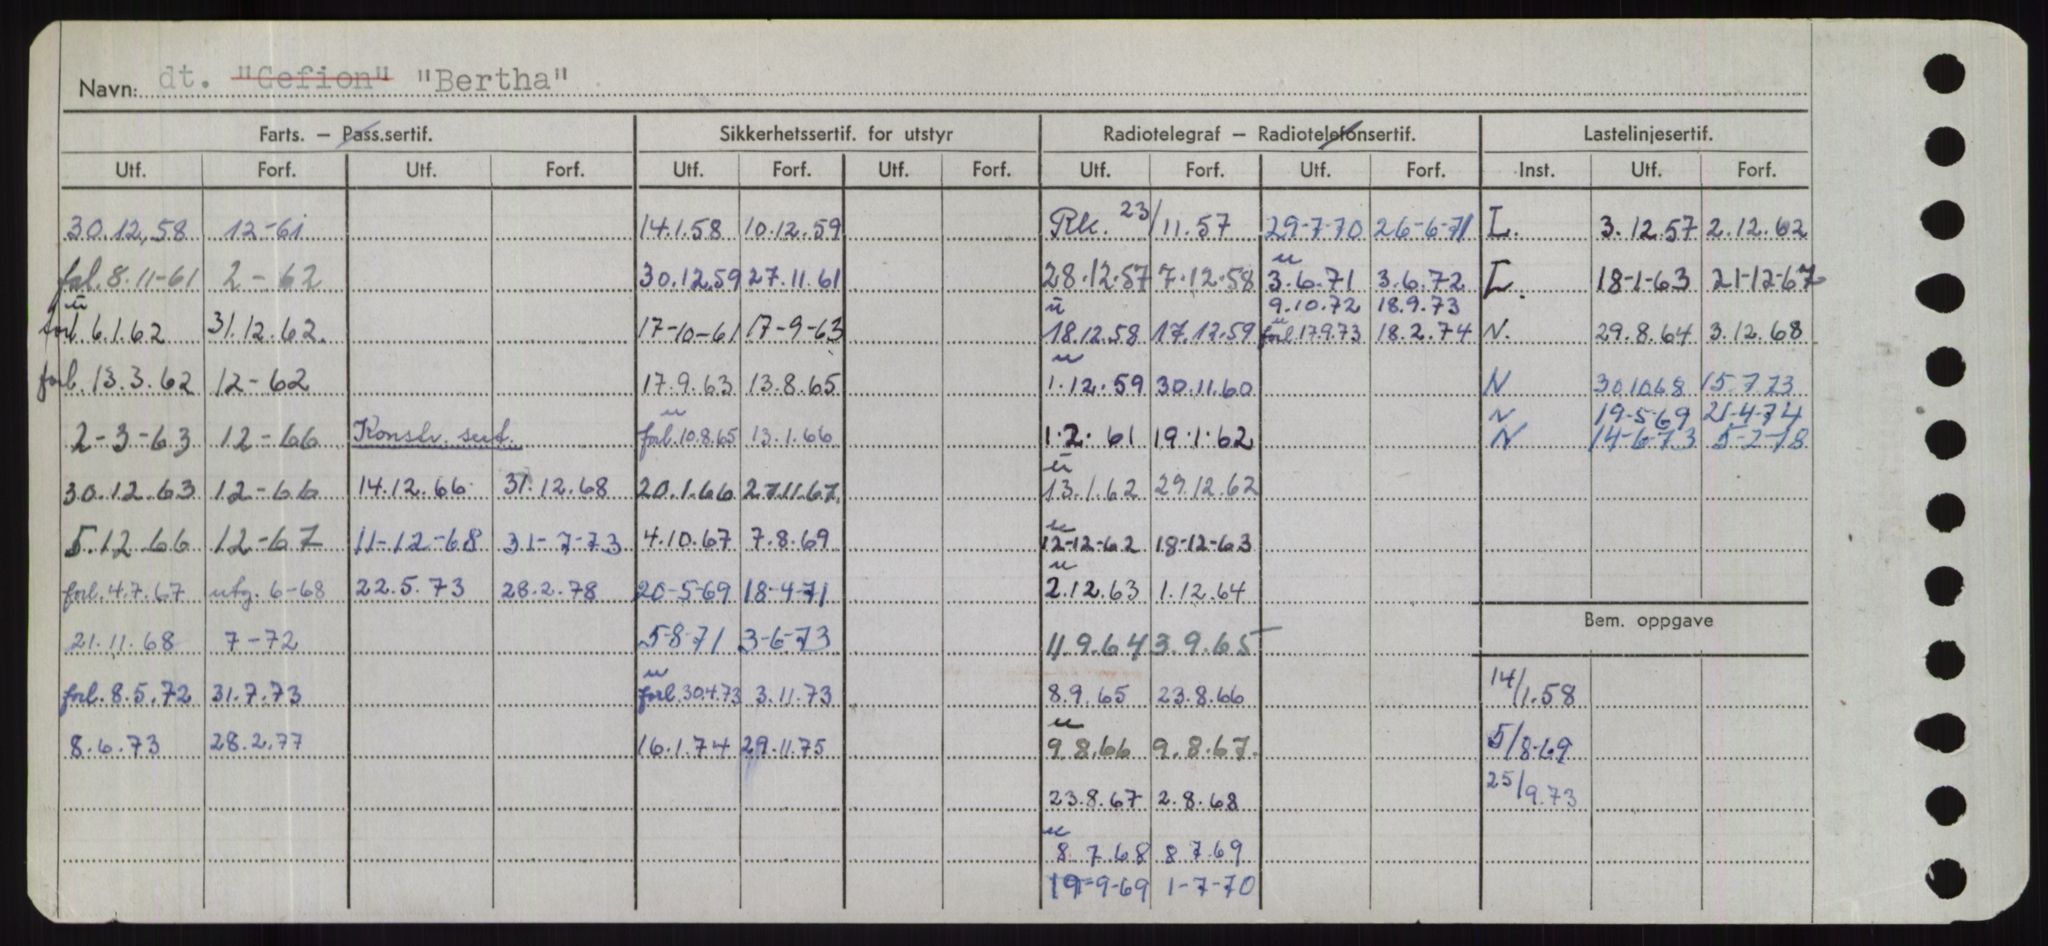 Navn: dt. "Gefion" "Bertha"
Farts. — Pass.sertif. Sikkerhetssertif. for utstyr Radiotelegraf — Radiotelefonsertif. Lastelinjesertif.
Utf. Forf. Utf. Forf. Utf. Forf. Utf. Forf. Utf. Forf. Utf. Forf. Inst. Utf. Forf.
30.12.58 12-61 14.1.58 10.12.59 Rk. 23/11.57 29-7-70 26-6-71 L. 3.12.57 2.12.62
u
forl. 8.11-61 2-62 30.12.59 27.11.61 28.12.57 7.12.58 3.6.71 3.6.72 L. 18-1-63 21-12-67
u u 9.10.72 18.9.73
forl. 6.1.62 31.12.62. 17-10-61 17-9-63 18.12.58 17.12.59 forl. 17.9.73 18.2.74 N. 29.8.64 3.12.68
u
forl. 13.3.62 12-62 17.9.63 13.8.65 1.12.59 30.11.60 N 30.10.68 15.7.73
u N 19-5-69 21-4-74
2-3-63 12-66 Konstr. sert. forl. 10.8.65 13.1.66 1.2.61 19.1.62 N 14-6-73 5-2-78
u
30.12.63 12-66 14.12.66 31.12.68 20.1.66 27.11.67. 13.1.62 29.12.62
u
5.12.66 12-67 11-12-68 31-7-73 4.10.67 7.8.69 12-12-62 18-12-63
u
forl. 4.7.67 utg. 6-68 22.5.73 28.2.78 20-5-69 18-4-71 2.12.63 1.12.64
Bem. oppgave
21.11.68 7-72 5-8-71 3-6-73 4.9.64 3.9.65
u
forl. 8.5.72 31.7.73 forl. 30.4.73 3.11.73 8.9.65 23.8.66 14/1.58
u
8.6.73 28.2.77 16.1.74 29.11.75 9.8.66 9.8.67. 5/8-69
23.8.67 2.8.68 25/9.73
u
8.7.68 8.7.69
19-9-69 1-7-70